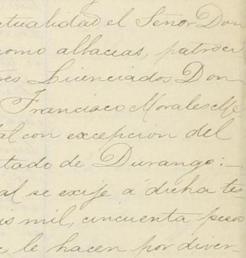 ctualidad el Señor Don
como albaceas, patroci
res Licenciados Don
Francisco Morales M
al con excepcion del
stado de Durango:—
al se exije á dicha te
is mil, cincuenta pesos
e le hacen por diver